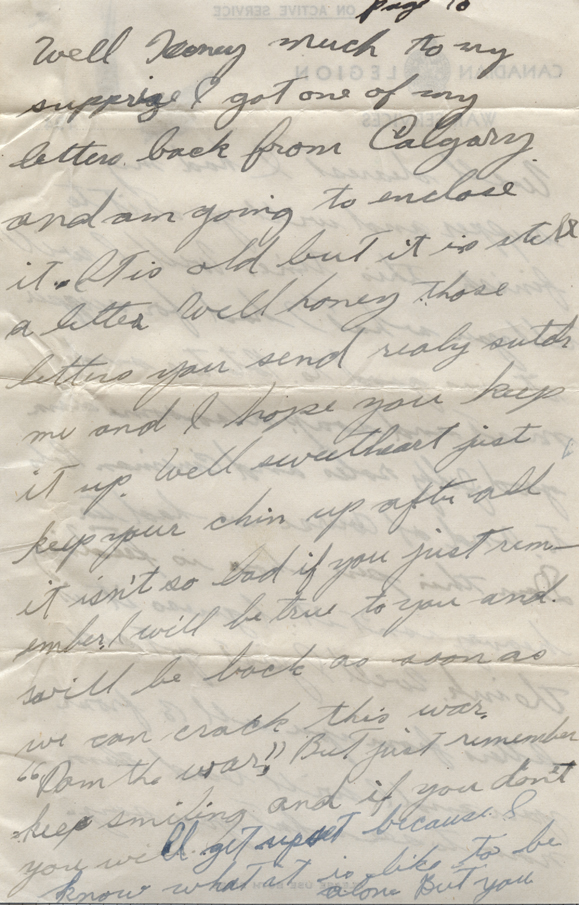 page 10
Well Honey much to my
supprize I got one of my
letters back from Calgary
and am going to enclose
it. Itis old but it is still
a letter Well honey those
letters you send realy sutch
me and I hope you keep
it up. Well sweetheart just
keep your chin up afte all
it isn't so bad if you just rem-
ember I will be true to you and
will be back as soon as
we can crack this war.
"Dam the war!" But just remember
keep smiling and if you don't
you will get upset because I
know what it is like to be
alone But you
ON ACTIVE SERVICE
CANADIAN LEGION
WAR SERVICES